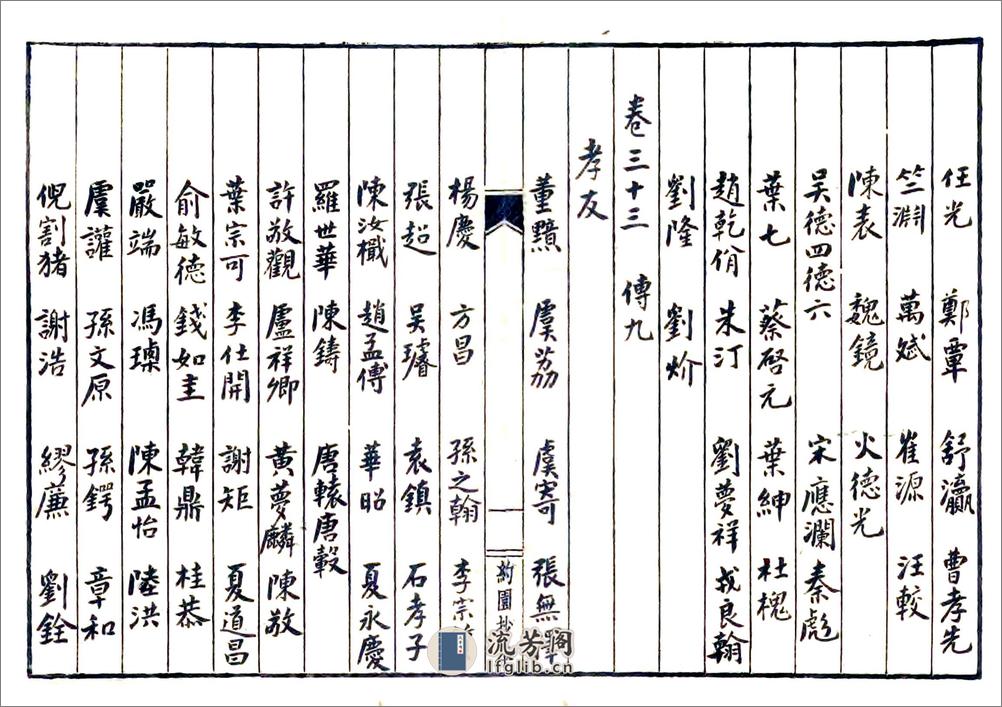 任光 鄭覃 舒瀛 曹孝先
竺淵 萬斌 崔源 汪較
陳表 魏鏡 火德光
吴德四德六 宋應瀾 秦彪
葉七 蔡啓元 葉紳 杜槐
趙乾佾 朱汀 劉夢祥 戎良翰
劉隆 劉炌
卷三十三 傳九
孝友
董黯 虞荔 虞寄 張無擇
約園抄
楊慶 方昌 孫之翰 李宗
張超 吴璿 袁鎮 石孝子
陳汝檝 趙孟傳 華昭 夏永慶
羅世華 陳鑄 唐轅唐轂
許敬觀 盧祥卿 黄夢麟 陳敬
葉宗可 李仕開 謝矩 夏道昌
俞敏德 錢如圭 韓鼎 桂恭
嚴端 馮㻫 陳孟怡 陸洪
虞讙 孫文原 孫鍔 章和
倪割猪 謝浩 繆廉 劉銓
流芳閣
lfglib.cn